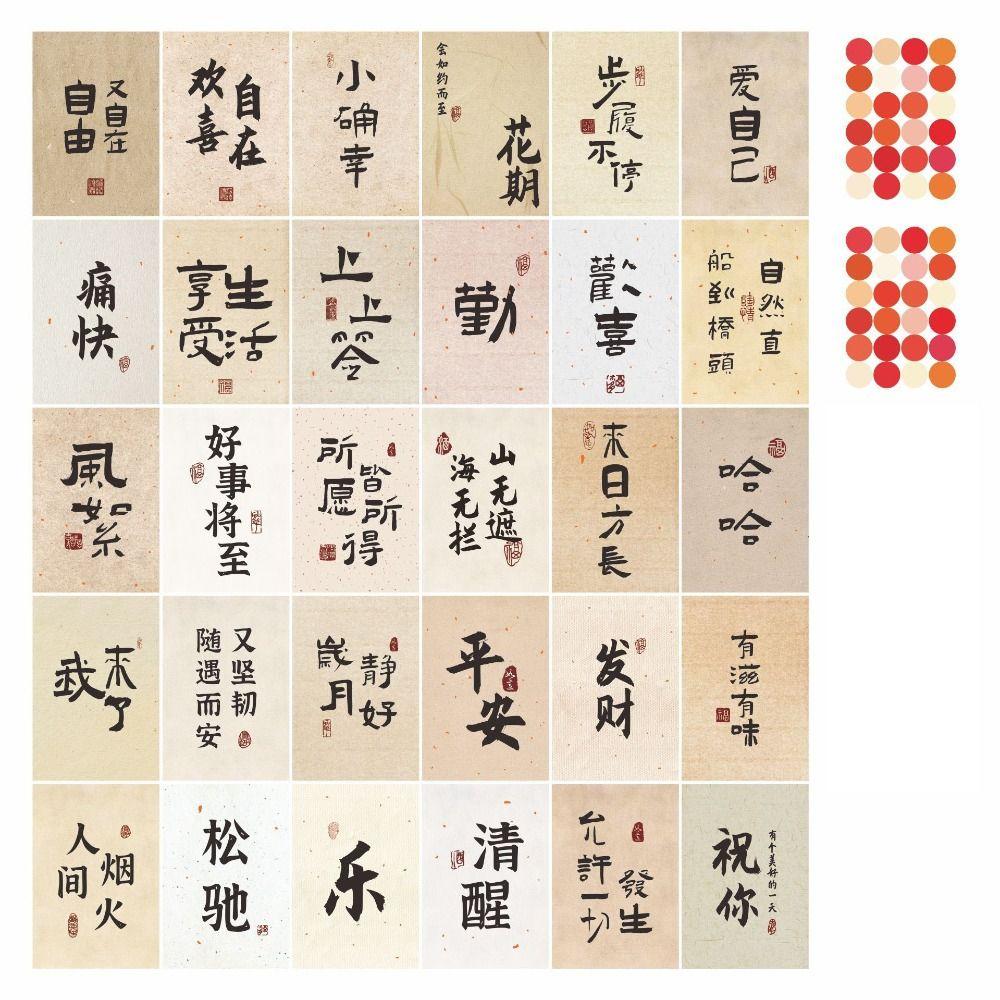 自由
又自在
欢喜
自在
小确幸
花期
会如约而至
步履
不停
爱自己
痛快
享受
生活
上上签
勤
歡喜
船到橋頭
自然直
風絮
好事将至
所愿
皆所得
山无遮
海无栏
来日方長
哈哈
我
来了
随遇而安
又坚韧
歲月
静好
平安
发财
有滋有味
人间
烟火
松驰
乐
清醒
允許一切
發生
祝你
有个美好的一天